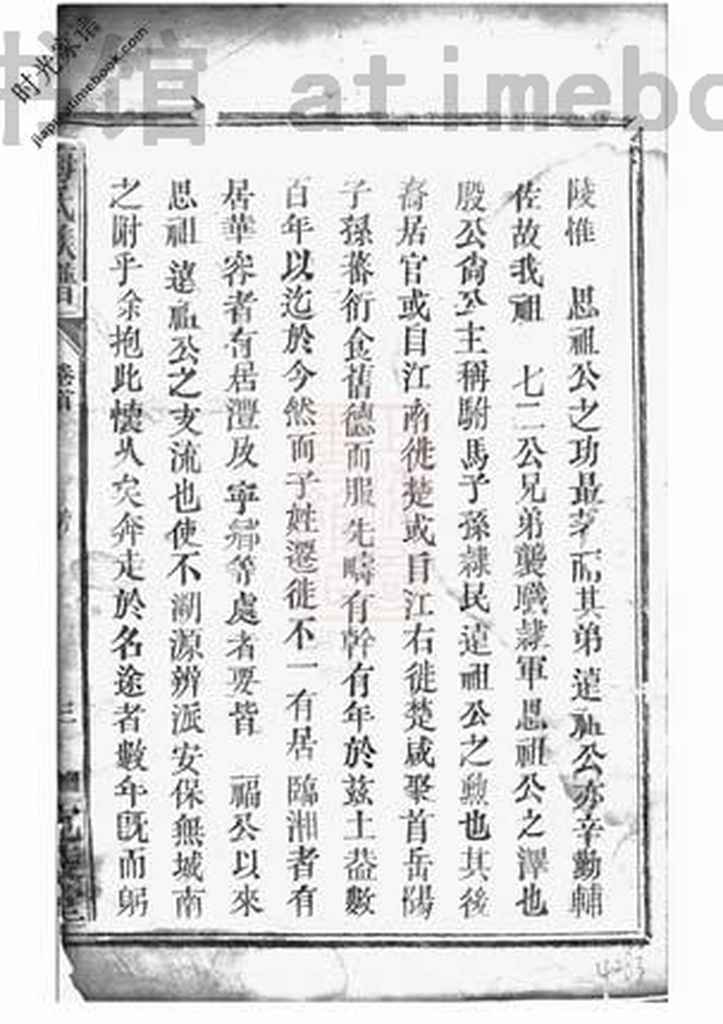 陵惟　思祖公之功最著而其弟遠祖公亦辛勤輔
佐故我祖　七二公兄弟襲職隷軍思祖公之澤也
殷公尚公主稱駙馬子孫隷民遠祖公之勲也其後
裔居官或自江南徙楚或自江右徙楚咸聚首岳陽
子孫蕃衍食舊德而服先疇有幹有年於茲土葢數
百年以迄於今然而子姓遷徙不一有居臨湘者有
居華容者有居澧及寧鄉等處者要皆　福公以來
思祖　遠祖公之支流也使不溯源辨派安保無城南
之附乎余抱此懷久矣奔走於名途者數年旣而躬
氏族譜
卷首
三
时光家谱
jiapu.atimebook.com
书馆 atimebo